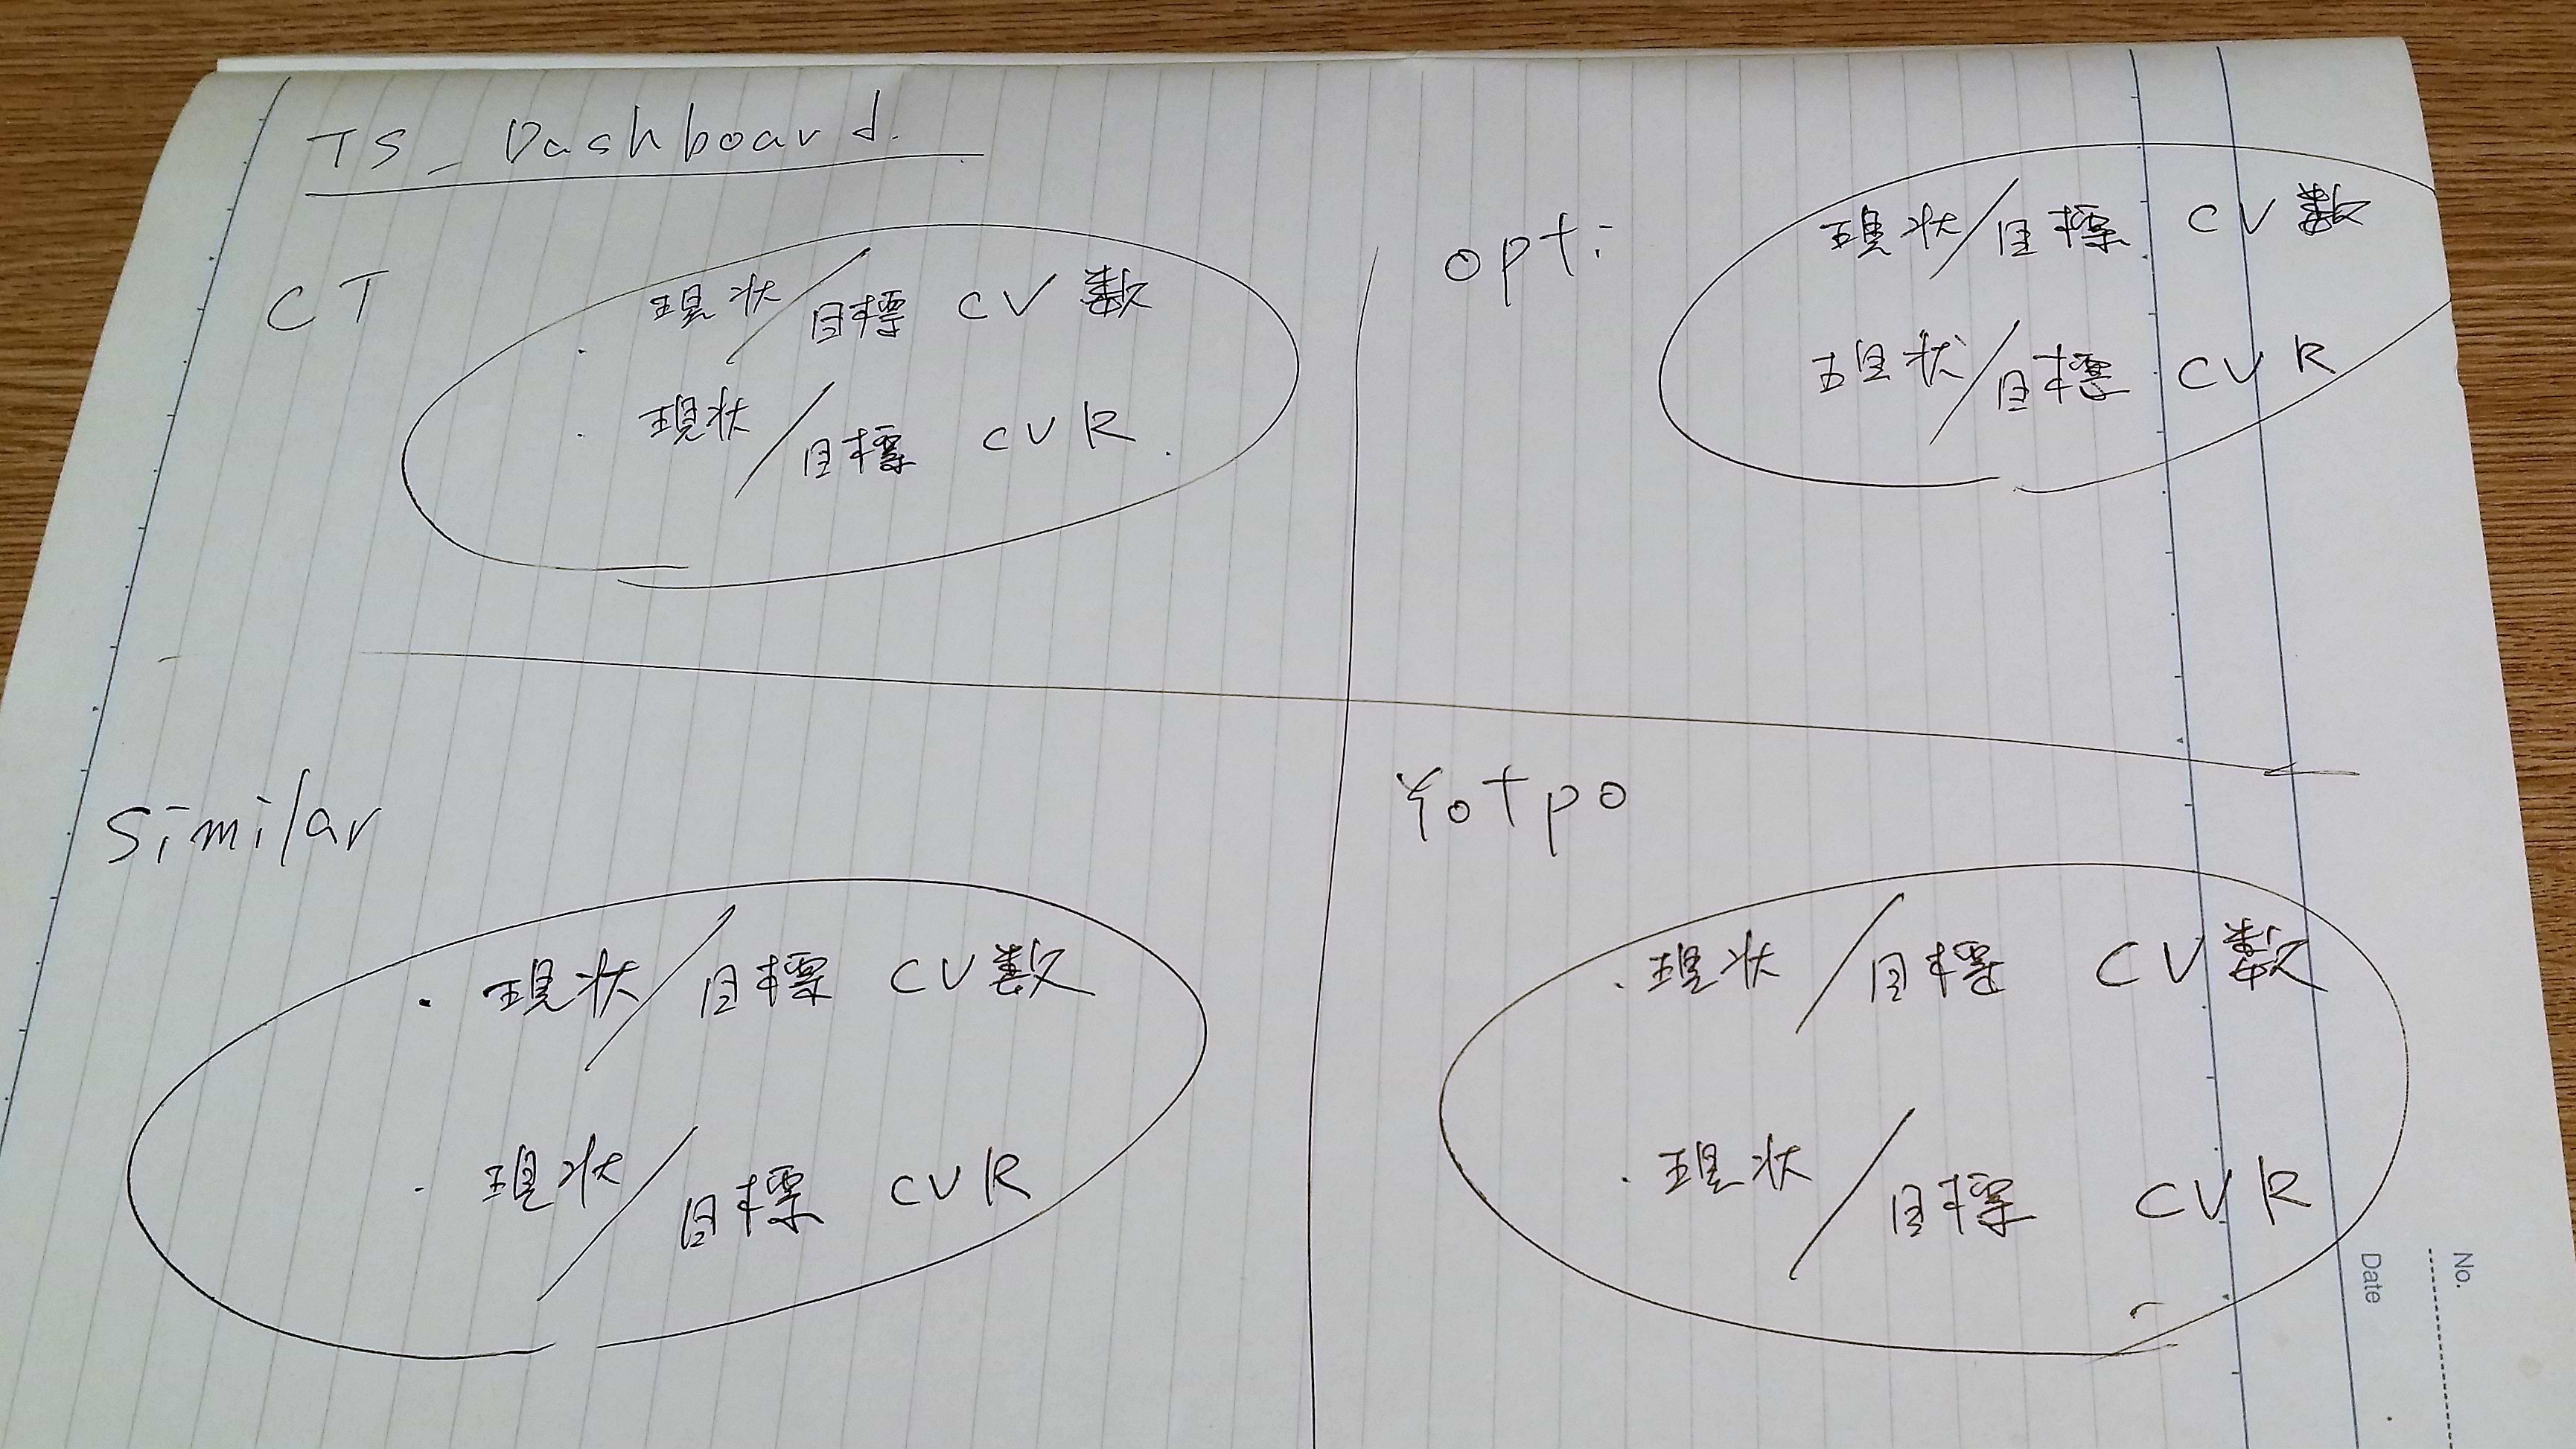 TS_Dashboard.
CT
・現状/目標 CV数
・現状/目標 CVR.
opti
現状/目標 CV数
現状/目標 CVR
Similar
・現状/目標 CV数
・現状/目標 CVR
Yotpo
・現状/目標 CV数
・現状/目標 CVR
No.
Date